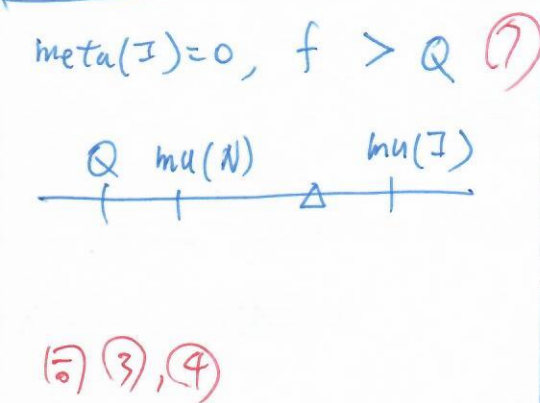 meta(I)=0, f > Q ⑦
Q mu(N) mu(I)
△
同 ③, ④